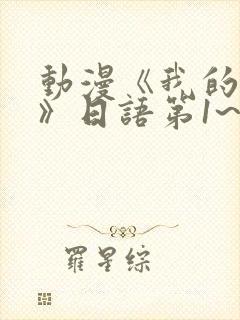 動漫《我的
》日語第1~
羅星綜